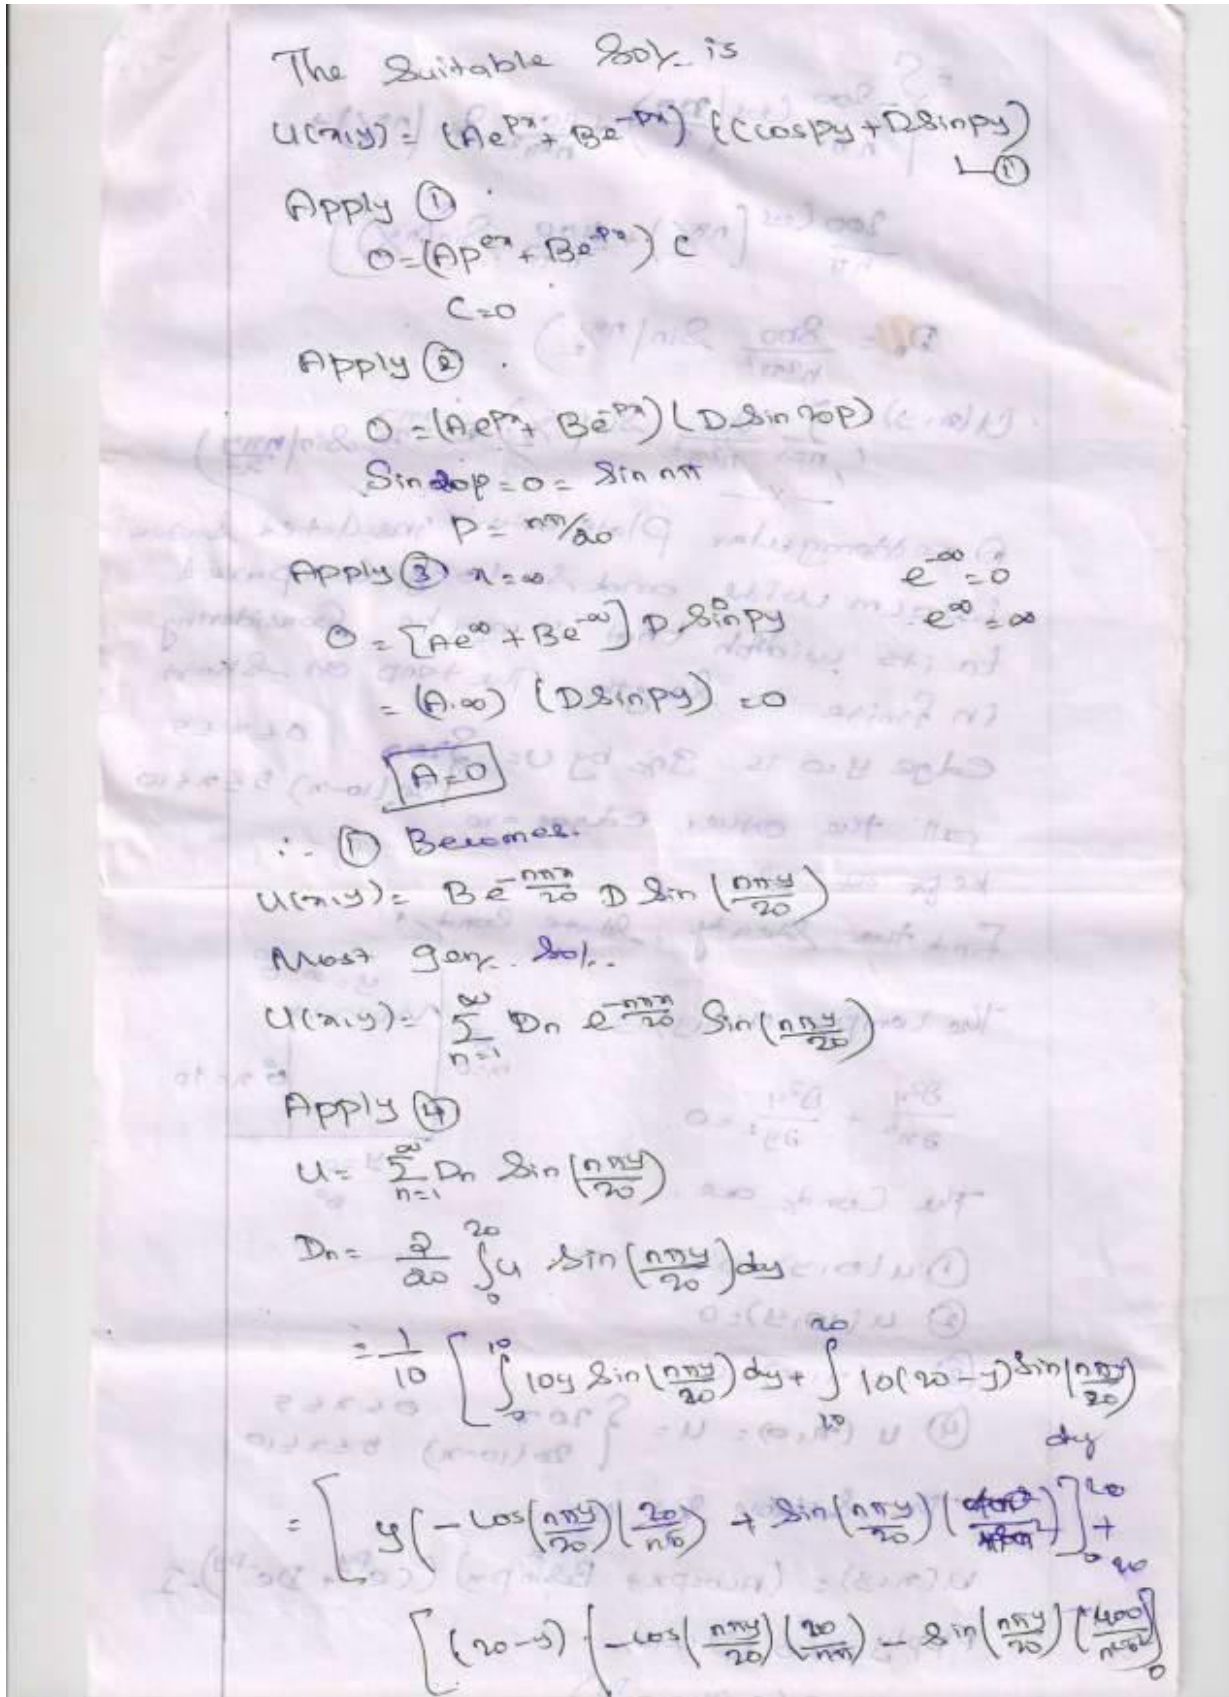 The Suitable Sol. is
U(x,y) = (Ae^{px} + Be^{-px}) (C cos py + D sin py)
①
Apply ①
0 = (Ap^{ex} + Be^{-px}) C
C=0
Apply ②
0 = (Ae^{px} + Be^{-px}) (D sin 20p)
Sin 20p = 0 = Sin nπ
P = nπ/20
Apply ③ x=∞ e^{-∞}=0
0 = [Ae^{∞} + Be^{-∞}] D Sin py e^{∞}=∞
= (A.∞) (D sin py) = 0
A=0
∴ ① Becomes.
U(x,y) = B e^{-nπx/20} D Sin (nπy/20)
Most gen. Sol.
U(x,y) = ∑_{n=1}^{∞} Dn e^{-nπx/20} Sin(nπy/20)
Apply ④
U = ∑_{n=1}^{∞} Dn Sin (nπy/20)
Dn = 2/20 ∫_0^{20} u sin (nπy/20) dy
= 1/10 [ ∫_0^{10} 10y Sin (nπy/20) dy + ∫_{10}^{20} 10(20-y) Sin (nπy/20)
dy
= [ y(-cos(nπy/20)(20/nπ) + Sin (nπy/20) ( ) ]_0^{20} +
[ (20-y) (-cos(nπy/20)(20/nπ) - Sin(nπy/20)(400/n²π²)